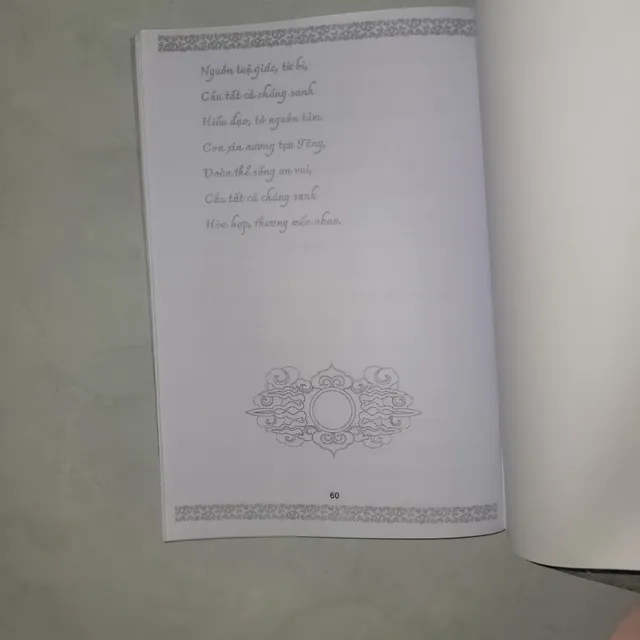 Nguồn tuệ giác, từ bi,
Cầu tất cả chúng sanh
Hiểu đạo, tỏ nguồn tâm.
Con xin nương tựa Tăng,
Đoàn thể sống an vui,
Cầu tất cả chúng sanh
Hòa hợp, thương mến nhau.
60